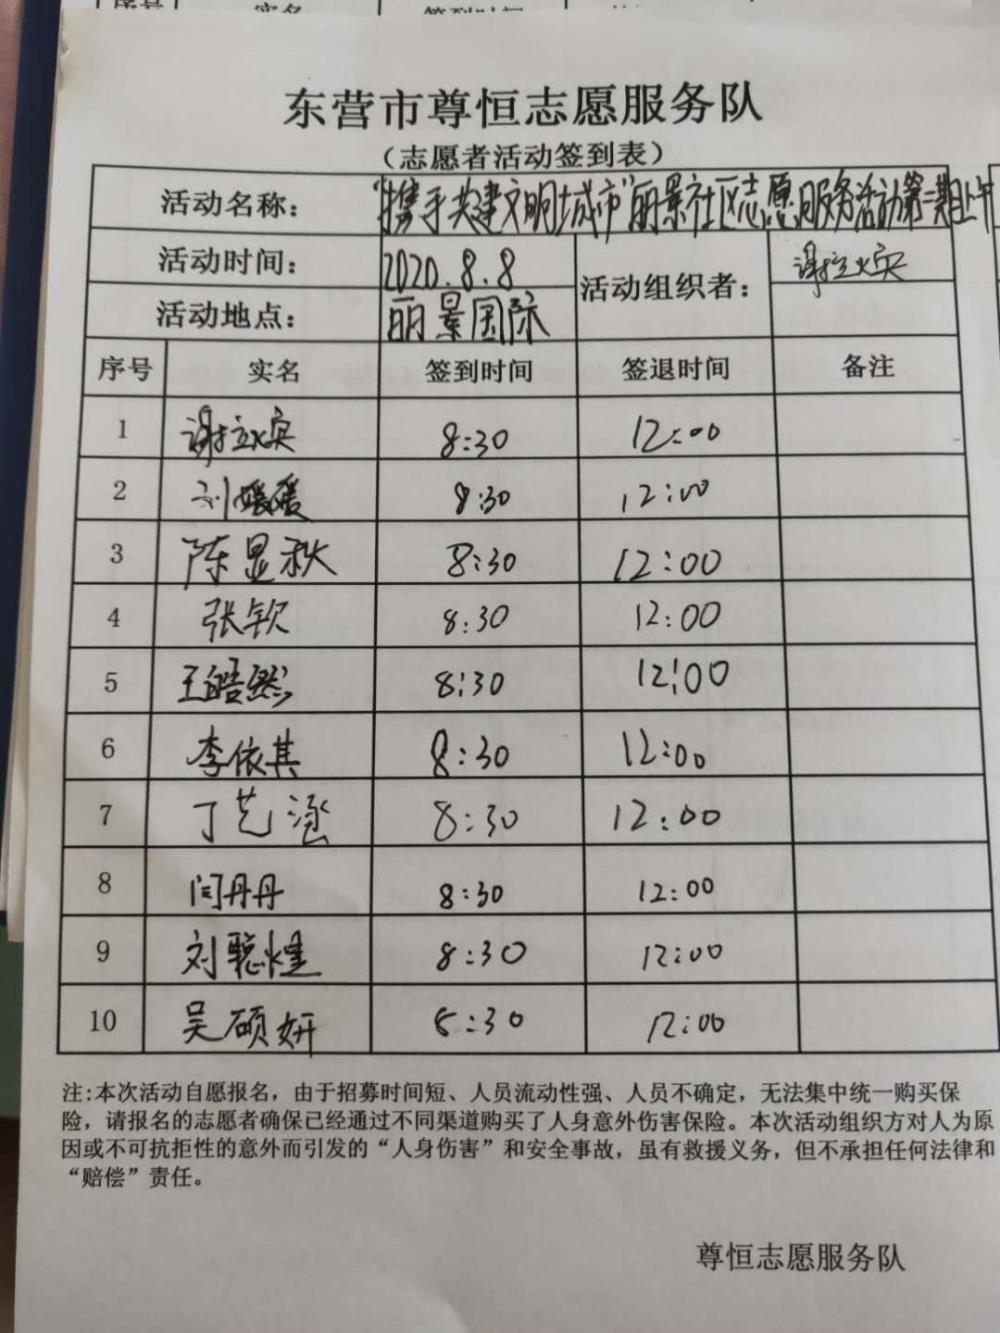 东营市尊恒志愿服务队
（志愿者活动签到表）
活动名称： “携手共建文明城市”丽景社区志愿服务活动第二期上午
活动时间： 2020.8.8 活动组织者：
活动地点： 丽景国际
序号 实名 签到时间 签退时间 备注
1 8:30 12:00
2 刘媛媛 8:30 12:00
3 陈显秋 8:30 12:00
4 张钦 8:30 12:00
5 王皓然 8:30 12:00
6 李依其 8:30 12:00
7 丁艺涵 8:30 12:00
8 闫丹丹 8:30 12:00
9 刘聪慧 8:30 12:00
10 吴硕妍 8:30 12:00
注:本次活动自愿报名，由于招募时间短、人员流动性强、人员不确定，无法集中统一购买保
险，请报名的志愿者确保已经通过不同渠道购买了人身意外伤害保险。本次活动组织方对人为原
因或不可抗拒性的意外而引发的“人身伤害”和安全事故，虽有救援义务，但不承担任何法律和
“赔偿”责任。
尊恒志愿服务队